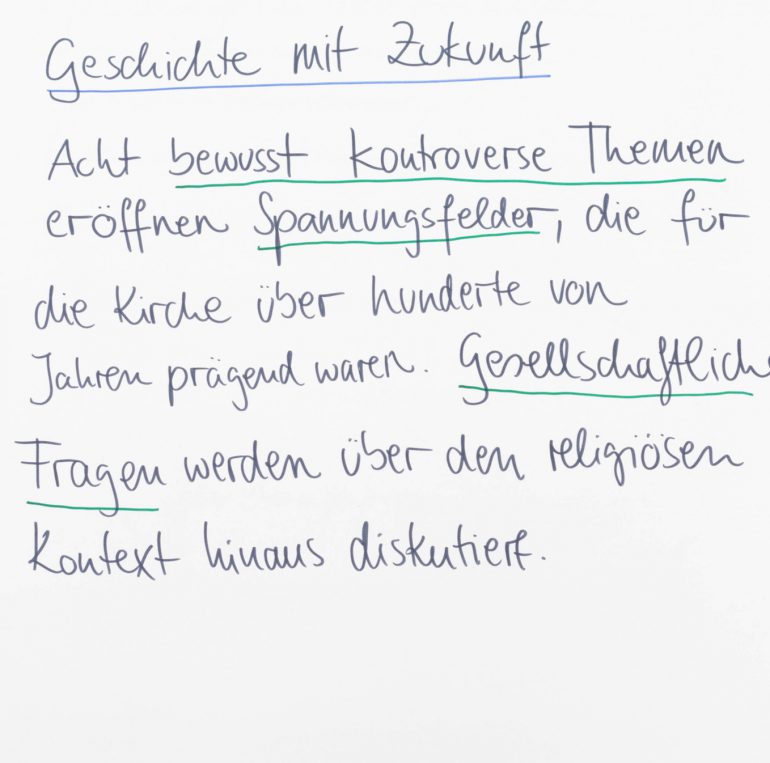 Geschichte mit Zukunft
Acht bewusst kontroverse Themen
eröffnen Spannungsfelder, die für
die Kirche über hunderte von
Jahren prägend waren. Gesellschaftlich
Fragen werden über den religiösen
Kontext hinaus diskutiert.